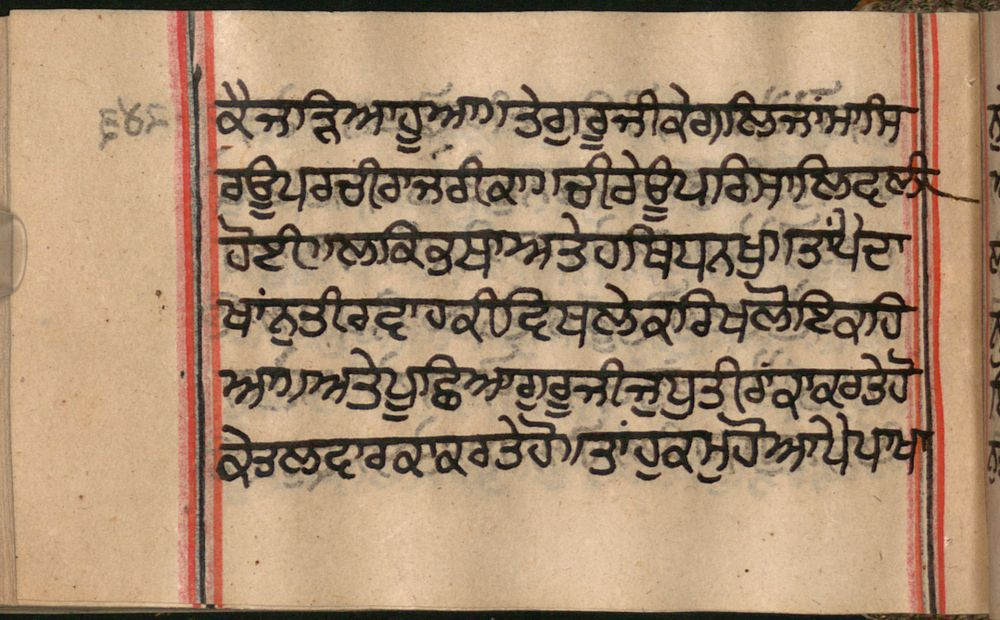 ਕੈਜਾਨਿਆਹੂਆ। ਤੇਗੁਰੂਜੀਕੇਗਲਿਜਾਂਮਾਸਿ
ਰਊਪਰਚੀਰਾਜਰੀਕਾ। ਚੀਰੇਊਪਰਿਸਾਲਿਵਲੀ
ਹੋਈ। ਲਕਿਭੁਥਾਅਤੇਹਥਿਧਨਖੁ। ਤਾਂਪੈਦਾ
ਖਾਂਨੁਤੀਰਵਾਹਕੀਵਿਥਲੇਕਰਿਖਲੋਇਕਹਿ
ਆ। ਅਤੇਪੂਛਿਆਗੁਰੂਜੀਜੁਪੁਤੀਰਾਂਕਾਕਰਤੇਹੋ
ਕੇਤਲਵਾਰਕਾਕਰਤੇਹੋ। ਤਾਂਹੁਕਮੁਹੋਆਪੈਪਾਖਾ